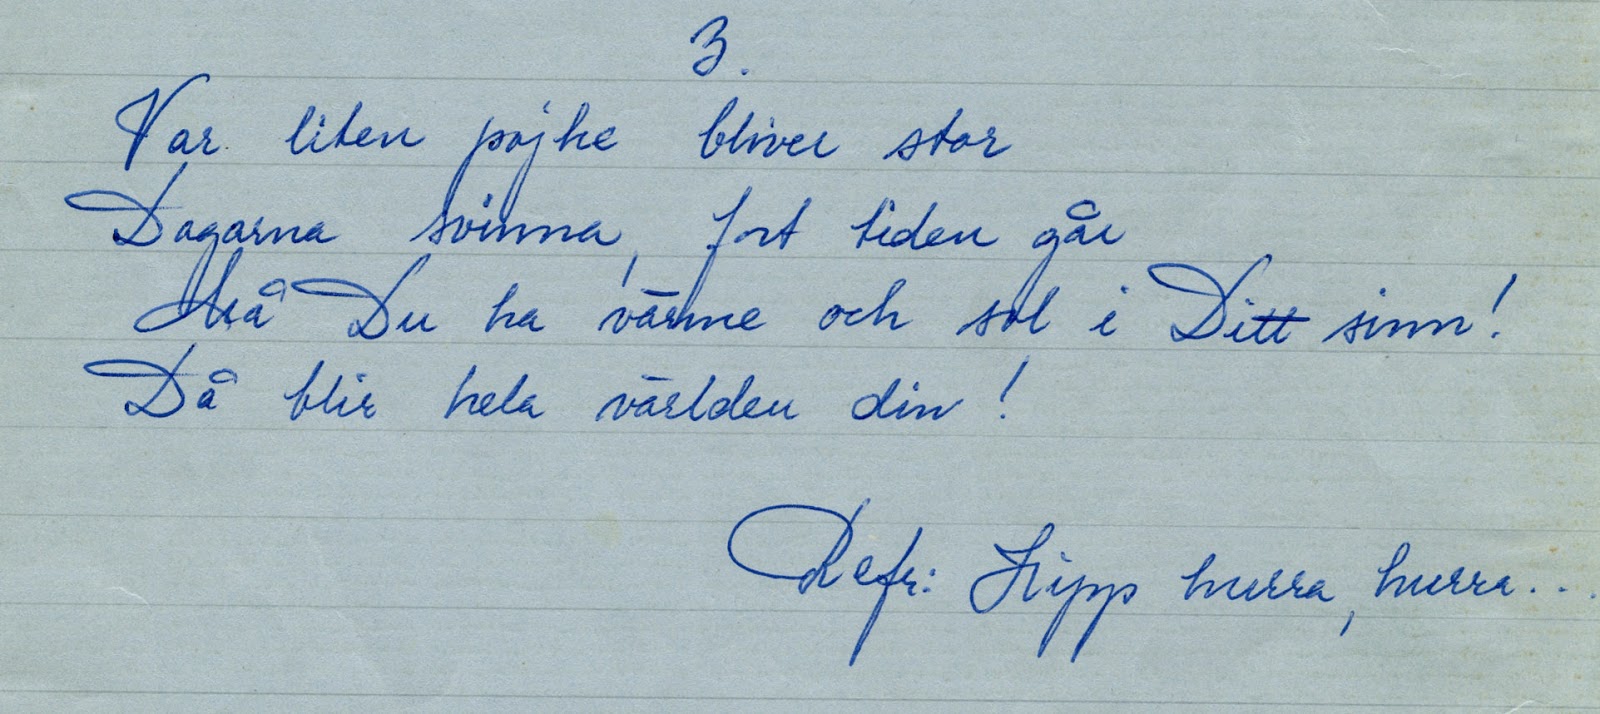 3.
Var liten pojke bliver stor
Dagarna svinna, fort tiden går
Må Du ha värme och sol i Ditt sinn!
Då blir hela världen din!
Refr: Hipp hurra, hurra...